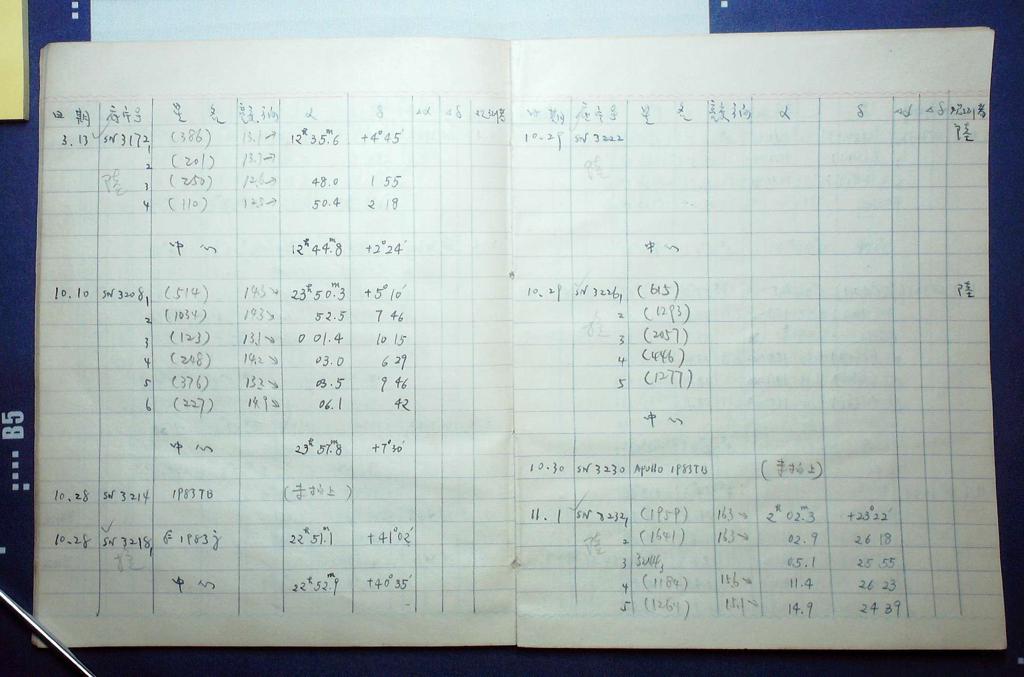 日期 底片号 星名 亮度 α δ Δα Δδ 观测者
3.13 SN3172 1 (386) 13.1 12ʰ35ᵐ.6 +4°45′
2 (201) 13.7
陆 3 (250) 12.6 48.0 1 55
4 (110) 12.3 50.4 2 18
中心 12ʰ44ᵐ.8 +2°24′
10.10 SN3208 1 (514) 14.5 23ʰ50ᵐ.3 +5°10′
2 (1034) 14.3 52.5 7 46
3 (123) 13.1 0 01.4 10 15
4 (248) 14.2 03.0 6 29
5 (376) 13.2 03.5 9 46
6 (227) 14.9 06.1 42
中心 23ʰ57ᵐ.8 +7°30′
10.28 SN3214 1983TB (未拍上)
10.28 SN3218 1 1983j 22ʰ51ᵐ.1 +41°02′
陆
中心 22ʰ52ᵐ.9 +40°35′
日期 底片号 星名 亮度 α δ Δα Δδ 观测者
10.29 SN3222 陆
陆
中心
10.29 SN3226 1 (615) 陆
2 (1293)
陆 3 (2057)
4 (446)
5 (1277)
中心
10.30 SN3230 Apollo 1983TB (未拍上)
11.1 SN3232 1 (1959) 16.3 2ʰ02ᵐ.3 +23°22′
陆 2 (1641) 16.3 02.9 26 18
3 05.1 25 55
4 (1184) 15.6 11.4 26 23
5 (1264) 15.1 14.9 24 39
B5